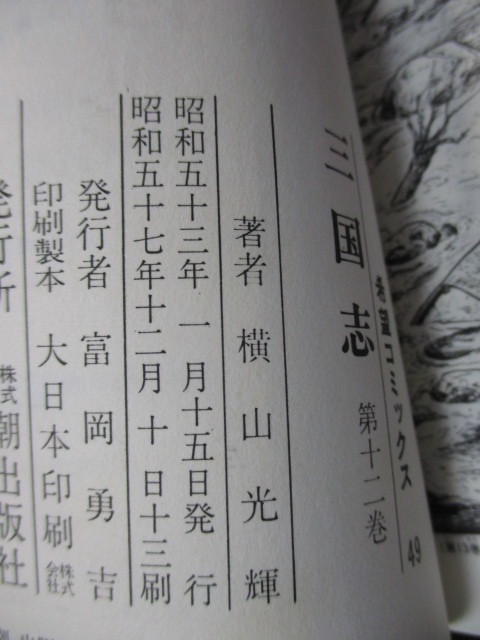 希望コミックス 49
三国志 第十二巻
著者 横山光輝
昭和五十三年 一 月十五日発 行
昭和五十七年十二月 十 日十三刷
発行者 富岡勇吉
印刷製本 大日本印刷 株式会社
発行所 株式 潮出版社